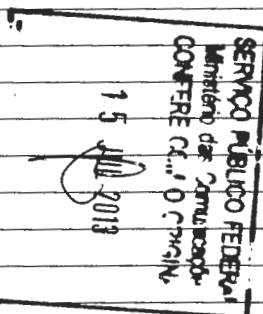 SERVIÇO PÚBLICO FEDERAL
Ministério das Comunicações
CONFERE COM O ORIGINAL
15 2013